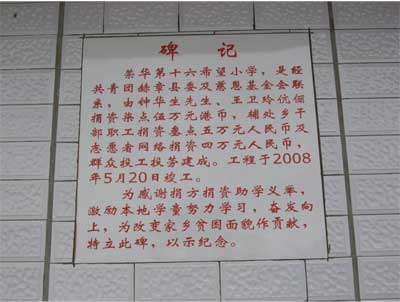 碑记
荣华第十六希望小学，是经
共青团赫章县委及慈恩基金会联
系，由钟华生先生、王卫玲伉俪
捐资柒点伍万元港币，辅处乡干
部职工捐资叁点五万元人民币及
志愿者网络捐资四万元人民币，
群众投工投劳建成。工程于2008
年5月20日竣工。
为感谢捐方捐资助学义举，
激励本地学童努力学习，奋发向
上，为改变家乡贫困面貌作贡献，
特立此碑，以示纪念。